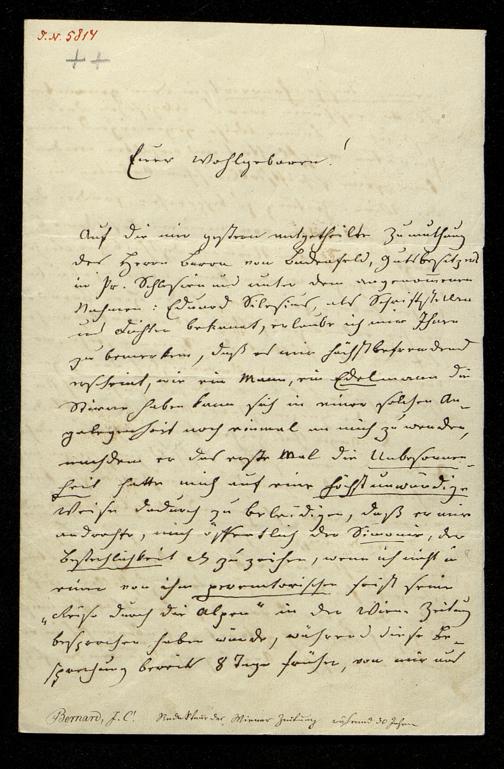 J.N. 5814
Euer Wohlgeboren!
Auf die mir gestern mitgetheilte Zumuthung
des Herrn Baron von Badenfeld, Gutsbesitzers
in Pr. Schlesien und unter dem angenommenen
Nahmen: Eduard Silesius, als Schriftsteller
und Dichter bekannt, erlaube ich mir Ihnen
zu bemerken, daß es mir höchst befremdend
erscheint, wie ein Mann, ein Edelmann die
Stirne haben kann sich in einer solchen An-
gelegenheit noch einmal an mich zu wenden,
nachdem er das erste Mal die Unbesonnen-
heit hatte mich auf eine höchst unwürdige
Weise dadurch zu beleidigen, daß er mir
androhte, mich öffentlich der Simonie, der
Bestechlichkeit zu zeihen, wenn ich nicht in
einer von ihm peremtorischen Frist seine
„Reise durch die Alpen" in der Wiener Zeitung
besprochen haben würde, während diese Be-
sprechung bereits 8 Tage früher, von mir aus
Bernard, J. C. Redakteur der Wiener Zeitung während 30 Jahren